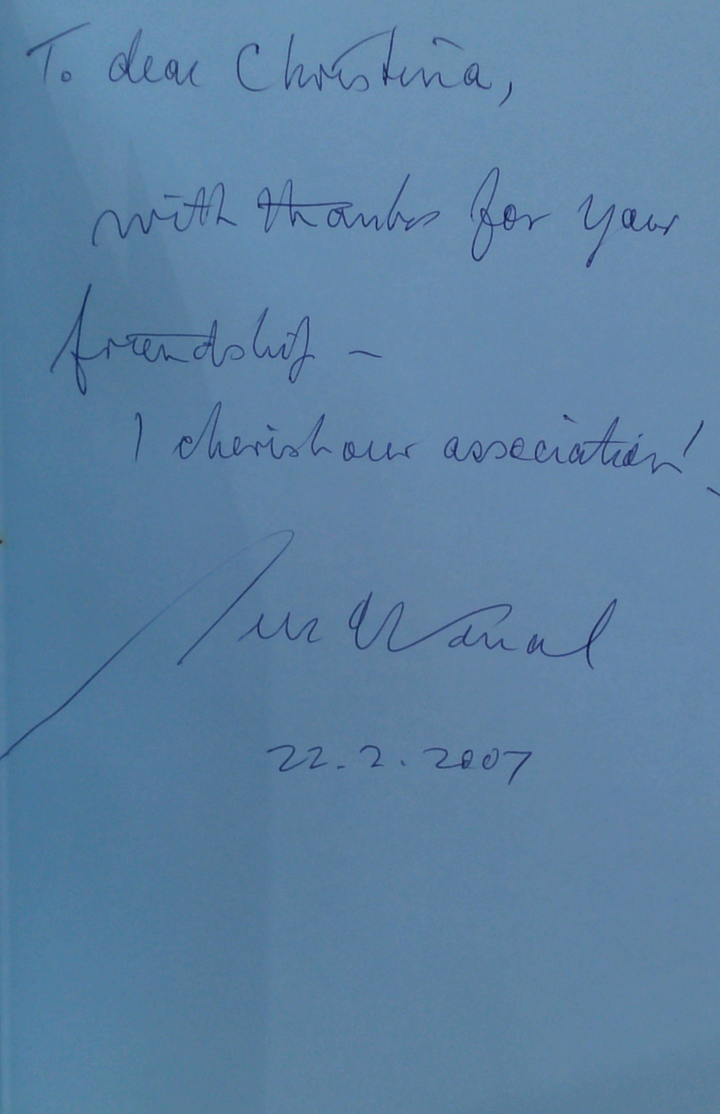 To dear Christina,
with thanks for your
friendship -
I cherish our association!
22.2.2007